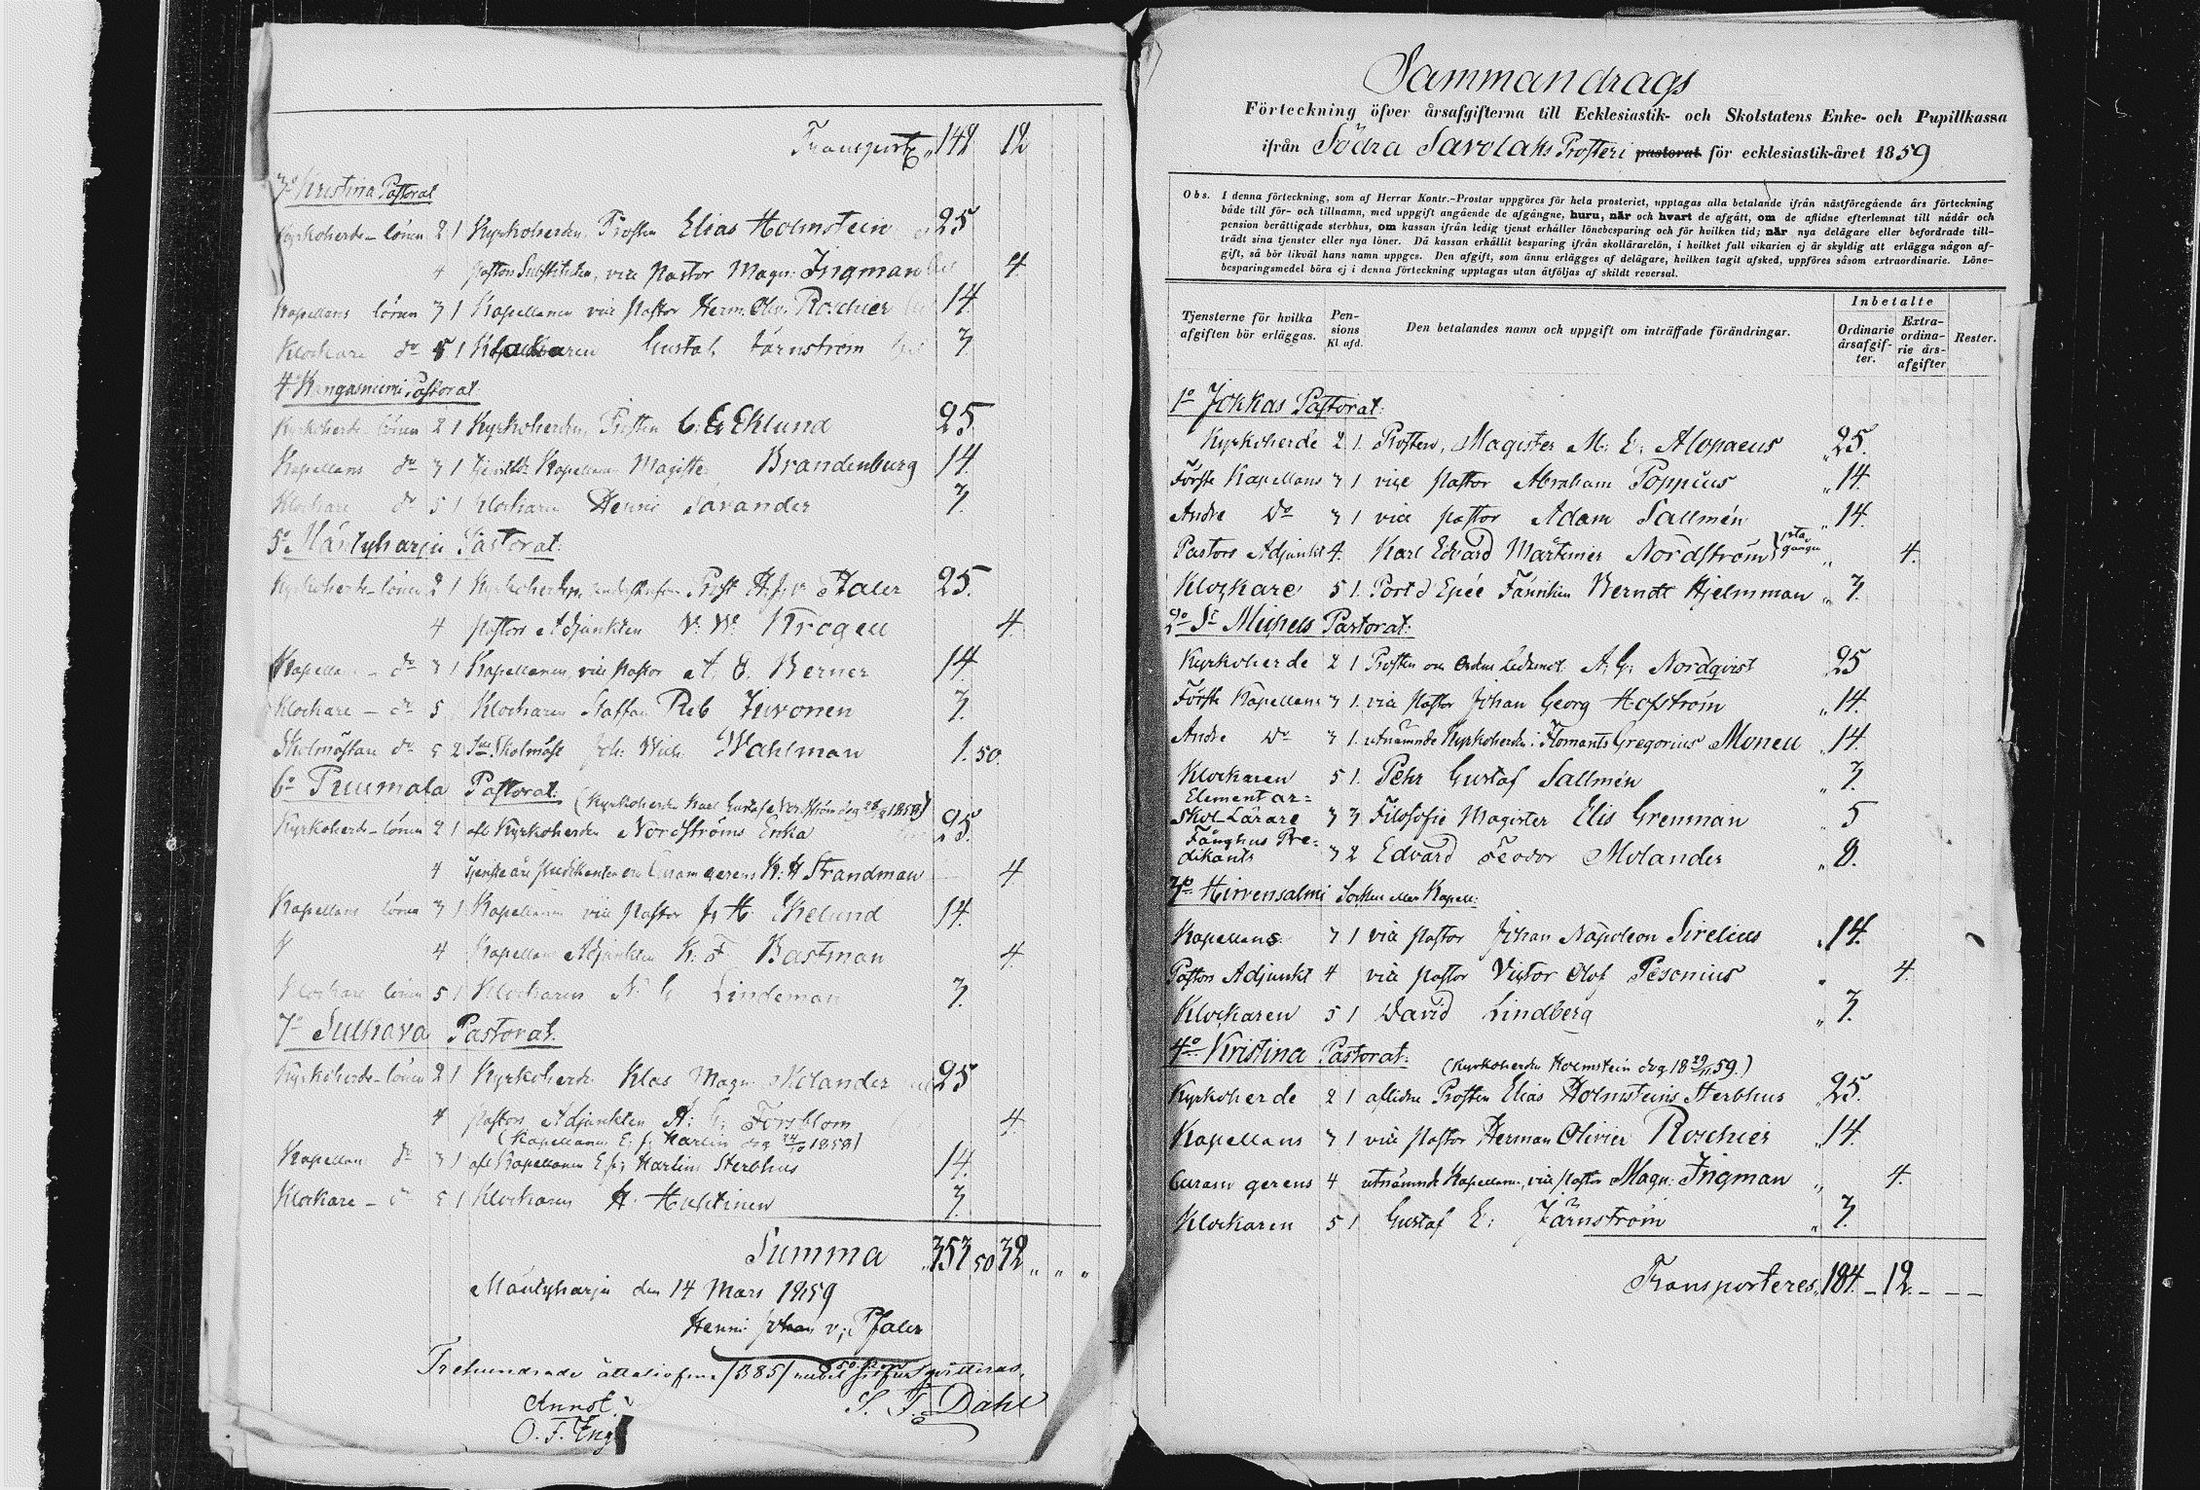 Transport 142 12
3o Kristina Pastoral
Kyrkoherde-lönen 2 1 Kyrkoherden, Prosten Elias Holmstein 25
4 Pastors Substituten, vice Pastor Magn: Ingman 4
Kapellans lönen 3 1 Kapellanen vice Pastor Herm. Oliv. Roschier 14.
Klockare do 5 1 Klockaren Gustaf Järnström 7
4o Kangasniemi Pastorat.
Kyrkoherde-lönen 2 1 Kyrkoherden, Prosten C. G. Eklund 25.
Kapellans do 3 1 Kapellanen Magister Brandenburg 14.
Klockare do 5 1 Klockaren Henric Savander 7.
5o Mäntyharju Pastorat.
Kyrkoherde-lönen 2 1 Kyrkoherden Prost H. J. v. Pfaler 25.
4 Pastors Adjunkten V. W. Krogell 4.
Kapellans do 3 1 Kapellanen, vice Pastor A. E. Berner 14.
Klockare - do 5 1 Klockaren Staffan Reb Juvonen 7.
Skolmästare do 5 2 Skolmäst. Joh. Wilh. Wahlman 1. 50.
6o Puumala Pastorat. (Kyrkoherden Karl Gustaf Nordström dog 1858)
Kyrkoherde-lönen 2 1 afl. Kyrkoherden Nordströms Enka 25.
4 Predikanten curam gerens K. H. Strandman 4
Kapellans lönen 3 1 Kapellanen vice Pastor J. H. Ekelund 14.
4 Kapellans Adjunkten K. F. Bastman 4.
Klockare lönen 5 1 Klockaren N. G. Lindeman 7.
7o Sulkava Pastorat.
Kyrkoherde-lönen 2 1 Kyrkoherde Klas Magn. Molander 25
4 Pastors Adjunkten A. G. Forsblom 4.
(Kapellanen E. J. Harlin dog 1858)
Kapellan do 3 1 afl. Kapellanen E. J. Harlins Sterbhus 14.
Klockare - do 5 1 Klockaren H. Huhtinen 7.
Summa 353 50 32 " " "
Mäntyharju den 14 Mars 1859
Henric Johan v: Pfaler
Trehundrade åttatiofem /385/ rubel 50 kop. silfver qvitteras,
S. F. Dahl
Annot.
O. F. Eng
Sammandrags
Förteckning öfver årsafgifterna till Ecklesiastik- och Skolstatens Enke- och Pupillkassa
ifrån Södra Savolaks Prosteri pastorat för ecklesiastik-året 1859
Obs. I denna förteckning, som af Herrar Kontr.-Prostar uppgöres för hela prosteriet, upptagas alla betalande ifrån nästföregående års förteckning
både till för- och tillnamn, med uppgift angående de afgångne, huru, når och hvart de afgått, om de aflidne efterlemnat till nådår och
pension berättigade sterbhus, om kassan ifrån ledig tjenst erhåller lönebesparing och för hvilken tid; når nya delägare eller befordrade till-
trädt sina tjenster eller nya löner. Då kassan erhållit besparing ifrån skollärarelön, i hvilket fall vikarien ej är skyldig att erlägga någon af-
gift, så bör likväl hans namn uppges. Den afgift, som ännu erlägges af delägare, hvilken tagit afsked, uppföres såsom extraordinarie. Löne-
besparingsmedel böra ej i denna förteckning upptagas utan åtföljas af skildt reversal.
Tjensterne för hvilka afgiften bör erläggas.
Pensions Kl afd.
Den betalandes namn och uppgift om inträffade förändringar.
Inbetalte
Ordinarie årsafgifter.
Extraordinarie årsafgifter
Rester.
1o Jokkas Pastorat:
Kyrkoherde 2 1. Prosten, Magister M: E: Alopaeus " 25.
Förste Kapellans 3 1 vice Pastor Abraham Poppius " 14.
Andre Do 3 1 vice Pastor Adam Sallmén " 14.
Pastors Adjunkt 4. Karl Edvard Mårtiner Nordström 1sta gången " 4.
Klockare 5 1. Port d'Epée Fänriken Berndt Hjelmman " 7.
2o St Michels Pastorat:
Kyrkoherde 2 1 Prosten och Ordens Ledamot A. G: Nordqvist 25
Förste Kapellans 3 1. vice Pastor Johan Georg Hofström " 14.
Andre Do 3 1. utnämnde Kyrkoherden i Ilomants Gregorius Monell " 14.
Klockaren 5 1. Pehr Gustaf Sallmén " 7.
Elementar=
Skol-Lärare 3 3 Filosofie Magister Elis Grenman " 5
Fånghus Pre=
dikants 3 2 Edvard Feodor Molander " 8.
3o Hirvensalmi Socken eller Kapell:
Kapellans. 3 1 vice Pastor Johan Napoleon Sirelius " 14.
Pastors Adjunkt 4 vice Pastor Victor Olof Pesonius " 4.
Klockaren 5 1 David Lindberg " 7.
4o Kristina Pastorat: (Kyrkoherden Holmstein dog 18 59.)
Kyrkoherde 2 1 aflidne Prosten Elias Holmsteins Sterbhus " 25.
Kapellans 3 1 vice Pastor Herman Olivier Roschier " 14.
Curam gerens 4 utnämnde Kapellanen, vice Pastor Magn: Ingman " 4.
Klockaren 5 1 Gustaf E: Järnström " 7.
Transporteres 184. - 12. - - -